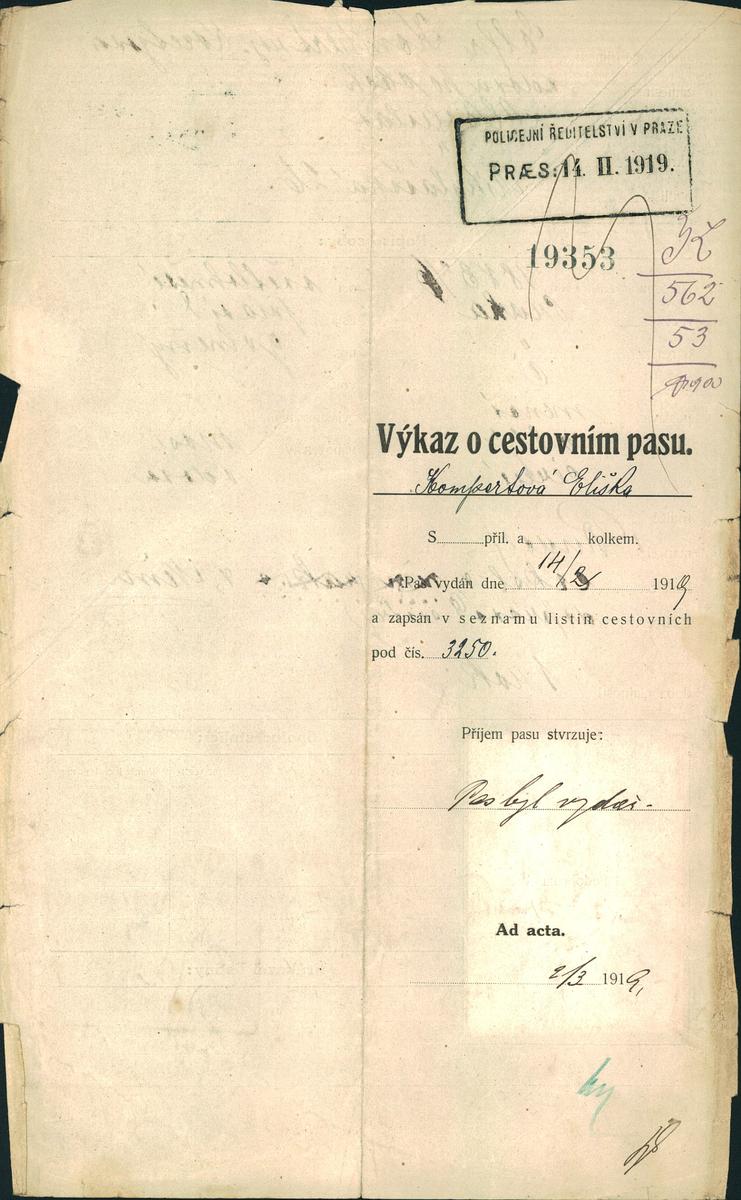 POLICEJNÍ ŘEDITELSTVÍ V PRAZE
PRÆS: 14. II. 1919.
19353
562
53
Výkaz o cestovním pasu.
Kompertová Eliška
S........příl. a........kolkem.
Pas vydán dne 14/2 1919
a zapsán v seznamu listin cestovních
pod čís. 3250.
Příjem pasu stvrzuje:
Pas byl vydán.
Ad acta.
2/3 1919,